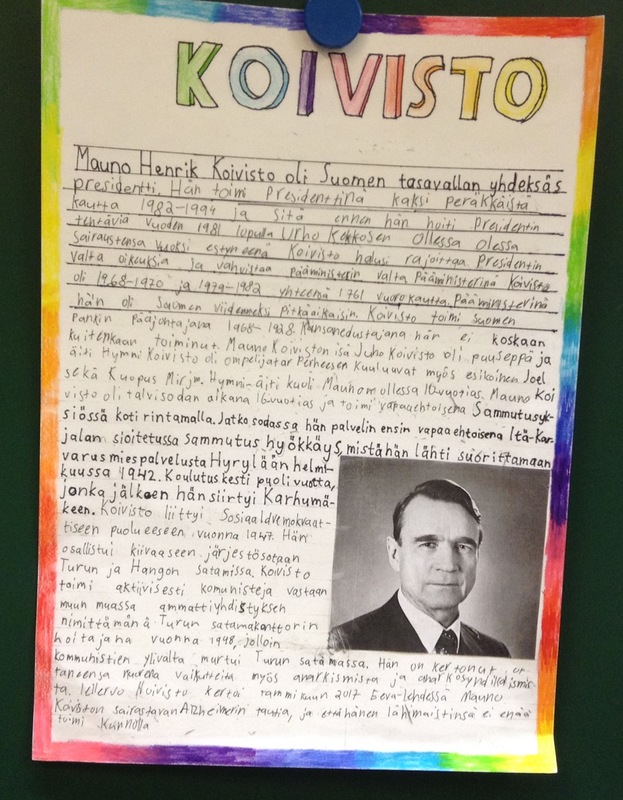 KOIVISTO
Mauno Henrik Koivisto oli Suomen tasavallan yhdeksäs
presidentti. Hän toimi Presidenttinä kaksi peräkkäistä
kautta 1982-1994 ja sitä ennen hän hoiti Presidentin
tehtäviä vuoden 1981 lopulla Urho Kekkosen ollessa olessa
sairautensa vuoksi estyneenä Koivisto halusi rajoittaa Presidentin
valta oikeuksia ja vahvistaa pääministerin valta Pääministerinä Koivisto
oli 1968-1970 ja 1979-1982 yhteenä 1761 vuorokautta. Pääministerinä
hän oli Suomen viidenneksi pitkäaikaisin. Koivisto toimi Suomen
Pankin pääjohtajana 1968-1928 Kansanedustajana hän ei koskaan
kuitenkaan toiminut. Mauno Koiviston isä Juho Koivisto oli puuseppä ja
äiti Hymni Koivisto oli ompelijatar Perheseen Kuuluuvat myös esikoinen Joel
sekä Kuopus Mirjm. Hymni-äiti kuoli Maunon ollessa 10-vuotias. Mauno Koi
visto oli talvisodan aikana 16vuotias ja toimi vapaaehtoisena Sammutusyk-
siössä koti rintamalla. Jatko sodassa hän palvelin ensin vapaa ehtoisena Itä-Kar-
jalan sioitetussa Sammutus hyökkäys, mistä hän lähti suorittamaan
varus mies palvelusta Hyrylään helmi-
kuussa 1942. Koulutus kesti puoli vuotta,
jonka jälkeen hän siirtyi Karhumä-
keen. Koivisto liittyi Sosiaaldvemokvaat-
tiseen puolueeseen vuonna 1947. Hän
osallistui kiivaaseen järjestösotaan
Turun ja Hangon Satamissa. Koivisto
toimi aktiivisesti komunisteja vastaan
muun muassa ammattiyhdistyksen
nimittämänä Turun satamakonttorin
hoitajana vuonna 1948, jolloin
kommunistien ylivalta murtui Turun satamassa. Hän on kertonut, ot-
taneensa nuorena vaikutteita myös anarkismista ja anarkosyndikalismis-
ta. Tellervo Koivisto kertoi tammikuun 2017 Eeva-lehdessä Mauno
Koiviston sairastavan Alzheimerin tautia, ja että hänen lähimaistinsä ei enää
toimi Kunnolla